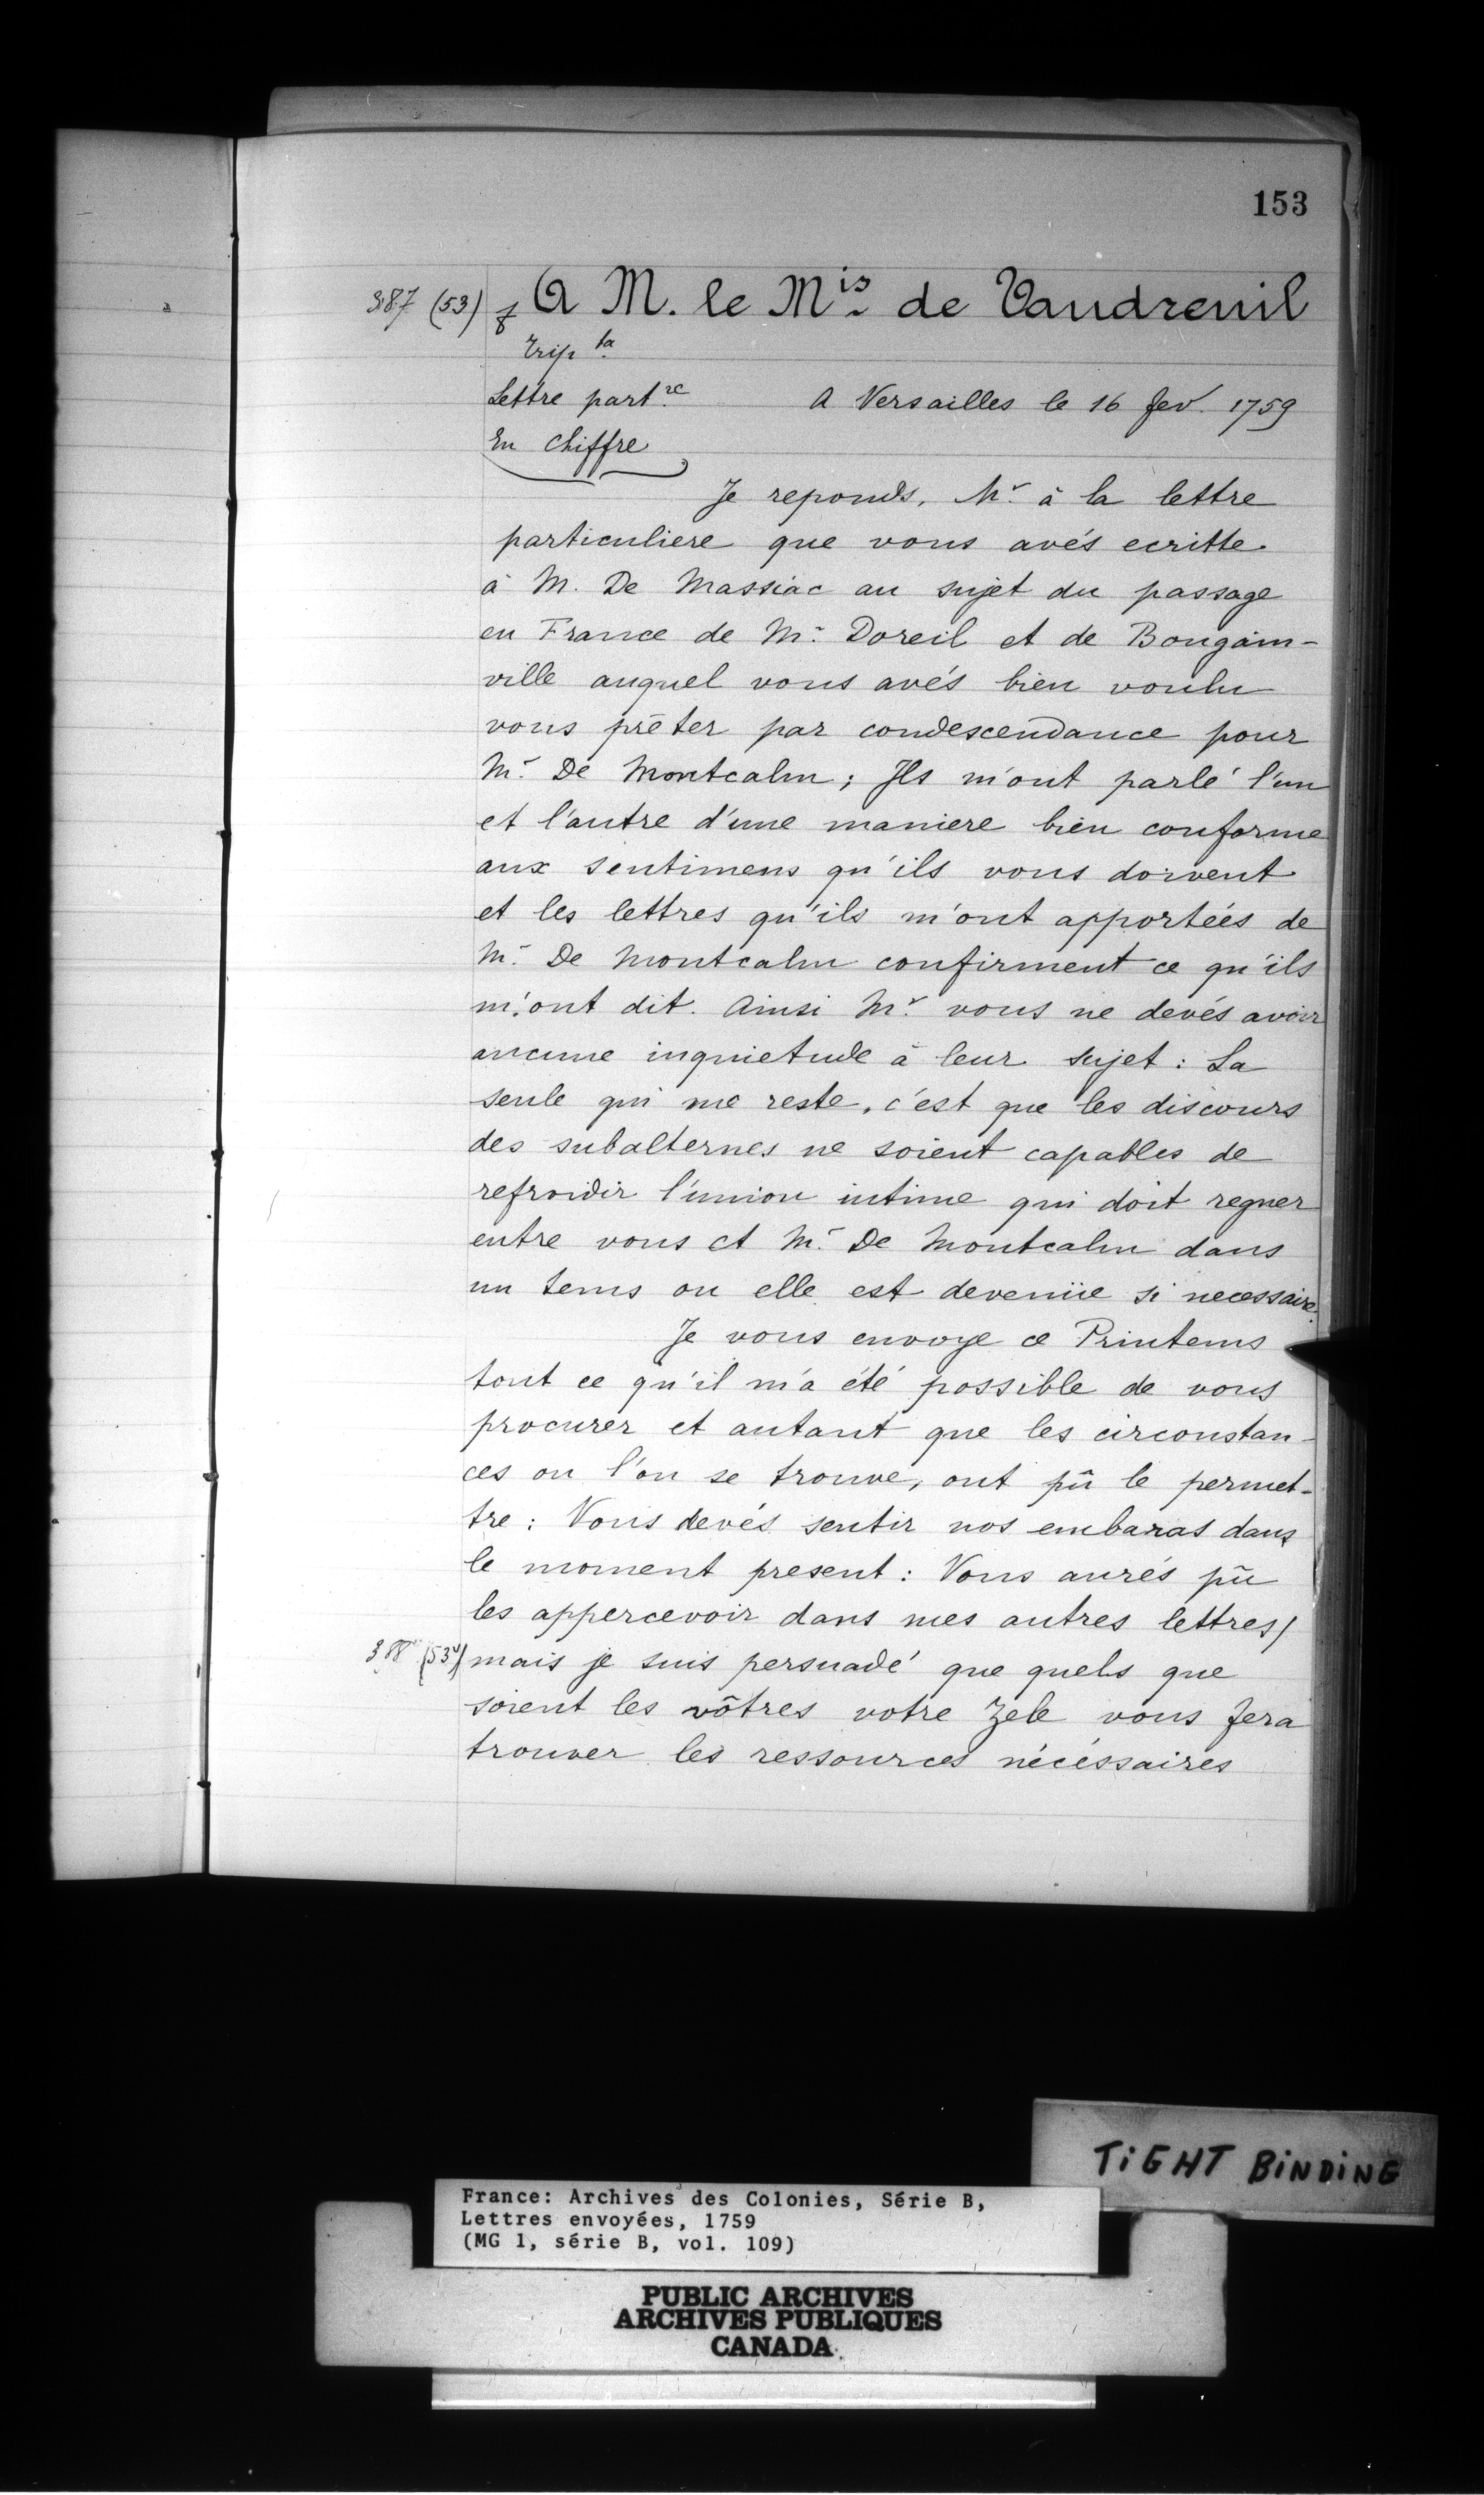 153
387 (53) A M. le M.is de Vaudreuil
Trip.ta
Lettre part.re A Versailles le 16 fev. 1759
En Chiffre
Je reponds, M.r à la lettre
particuliere que vous avés ecritte
à M. De Massiac au sujet du passage
en France de M.r Doreil et de Bougain-
ville auquel vous avés bien voulu
vous prêter par condescendance pour
M.r De Montcalm ; Ils m'ont parlé l'un
et l'autre d'une maniere bien conforme
aux sentimens qu'ils vous doivent
et les lettres qu'ils m'ont apportées de
M.r De Montcalm confirment ce qu'ils
m'ont dit. Ainsi M.r vous ne devés avoir
aucune inquietude à leur sujet : La
seule qui me reste, c'est que les discours
des subalternes ne soient capables de
refroidir l'union intime qui doit regner
entre vous et M.r De Montcalm dans
un tems ou elle est devenüe si necessaire.
Je vous envoye ce Printems
tout ce qu'il m'a été possible de vous
procurer et autant que les circonstan-
ces ou l'on se trouve, ont pû le permet-
tre : Vous devés sentir nos embaras dans
le moment present : Vous aurés pû
les appercevoir dans mes autres lettres/
388 (53v) mais je suis persuadé que quels que
soient les vôtres votre Zele vous fera
trouver les ressources nécéssaires
TIGHT BINDING
France: Archives des Colonies, Série B,
Lettres envoyées, 1759
(MG 1, série B, vol. 109)
PUBLIC ARCHIVES
ARCHIVES PUBLIQUES
CANADA